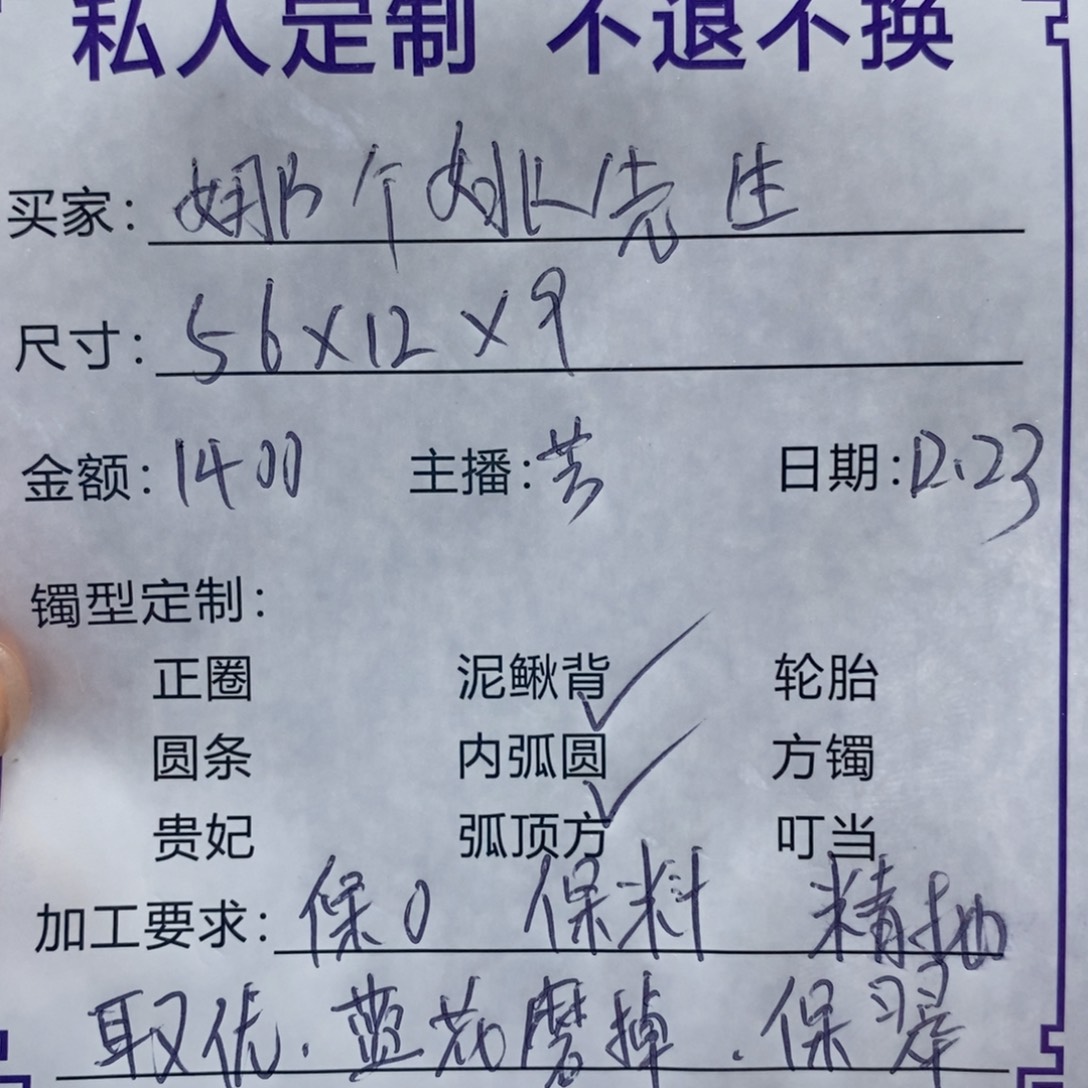 私人定制 不退不换
买家: 娜个姚先生
尺寸: 56×12×9
金额: 1400 主播: 芸 日期: 12.23
镯型定制:
正圈 泥鳅背 轮胎
圆条 内弧圆 方镯
贵妃 弧顶方 叮当
加工要求: 保0 保料 精抛
取优.蓝花磨掉.保翠